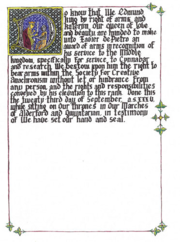 o know that We Edmund
king by right of arms, and
Kateryn, our queen of love
and beauty are minded to make
unto Xavier de Pietra an
award of arms in recognition of
his service to the Middle
kingdom, specifically for service to Cynnabar
and research. We bestow upon him the right to
bear arms within the Society for Creative
Anachronism without let or hindrance from
any person, and the rights and responsibilities
conveyed by his elevation to this rank. Done this
the twenty third day of September a.s. xxxv
while sitting on our thrones in our Marches
of Alderford and in testimony
of We have set our hand and seal.